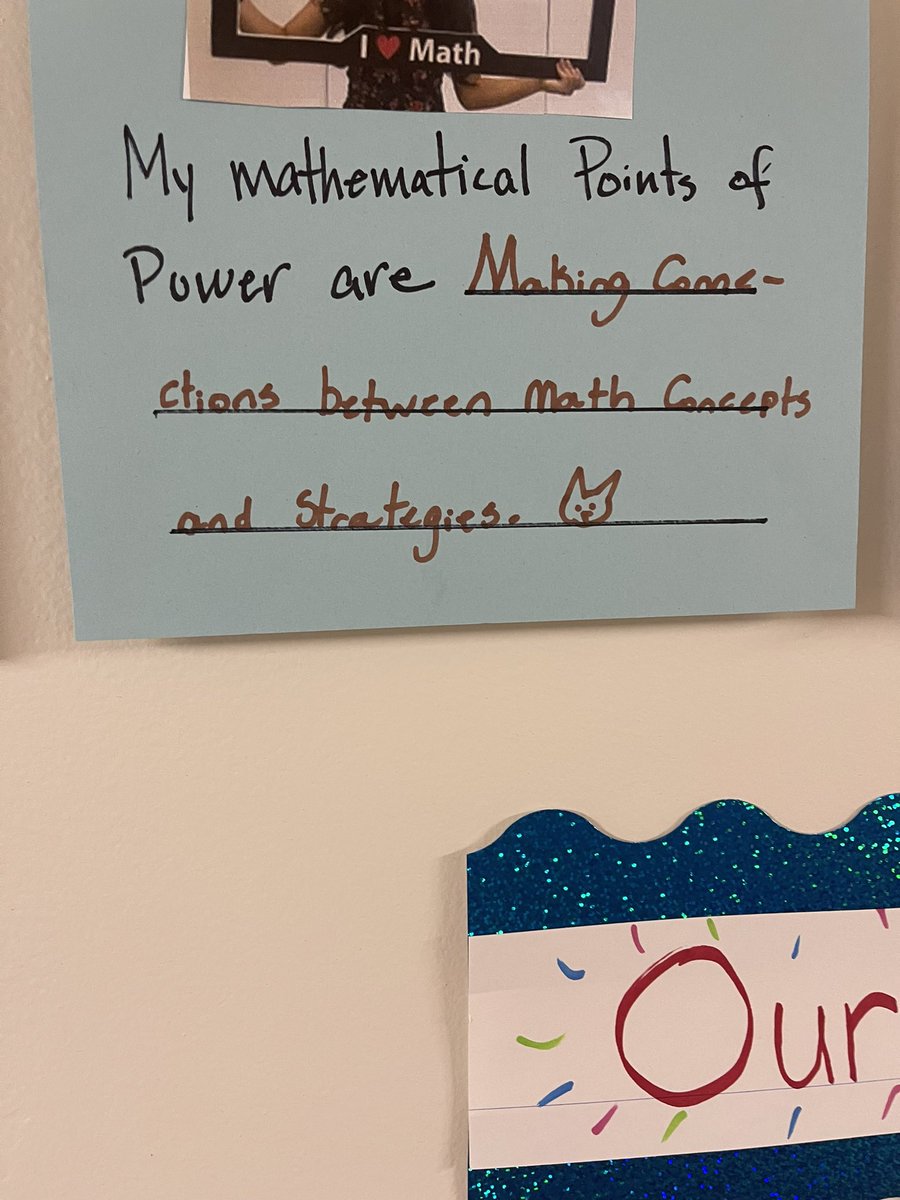 I ❤ Math
My mathematical Points of
Power are Making Conne-
ctions between Math Concepts
and Strategies.
Our